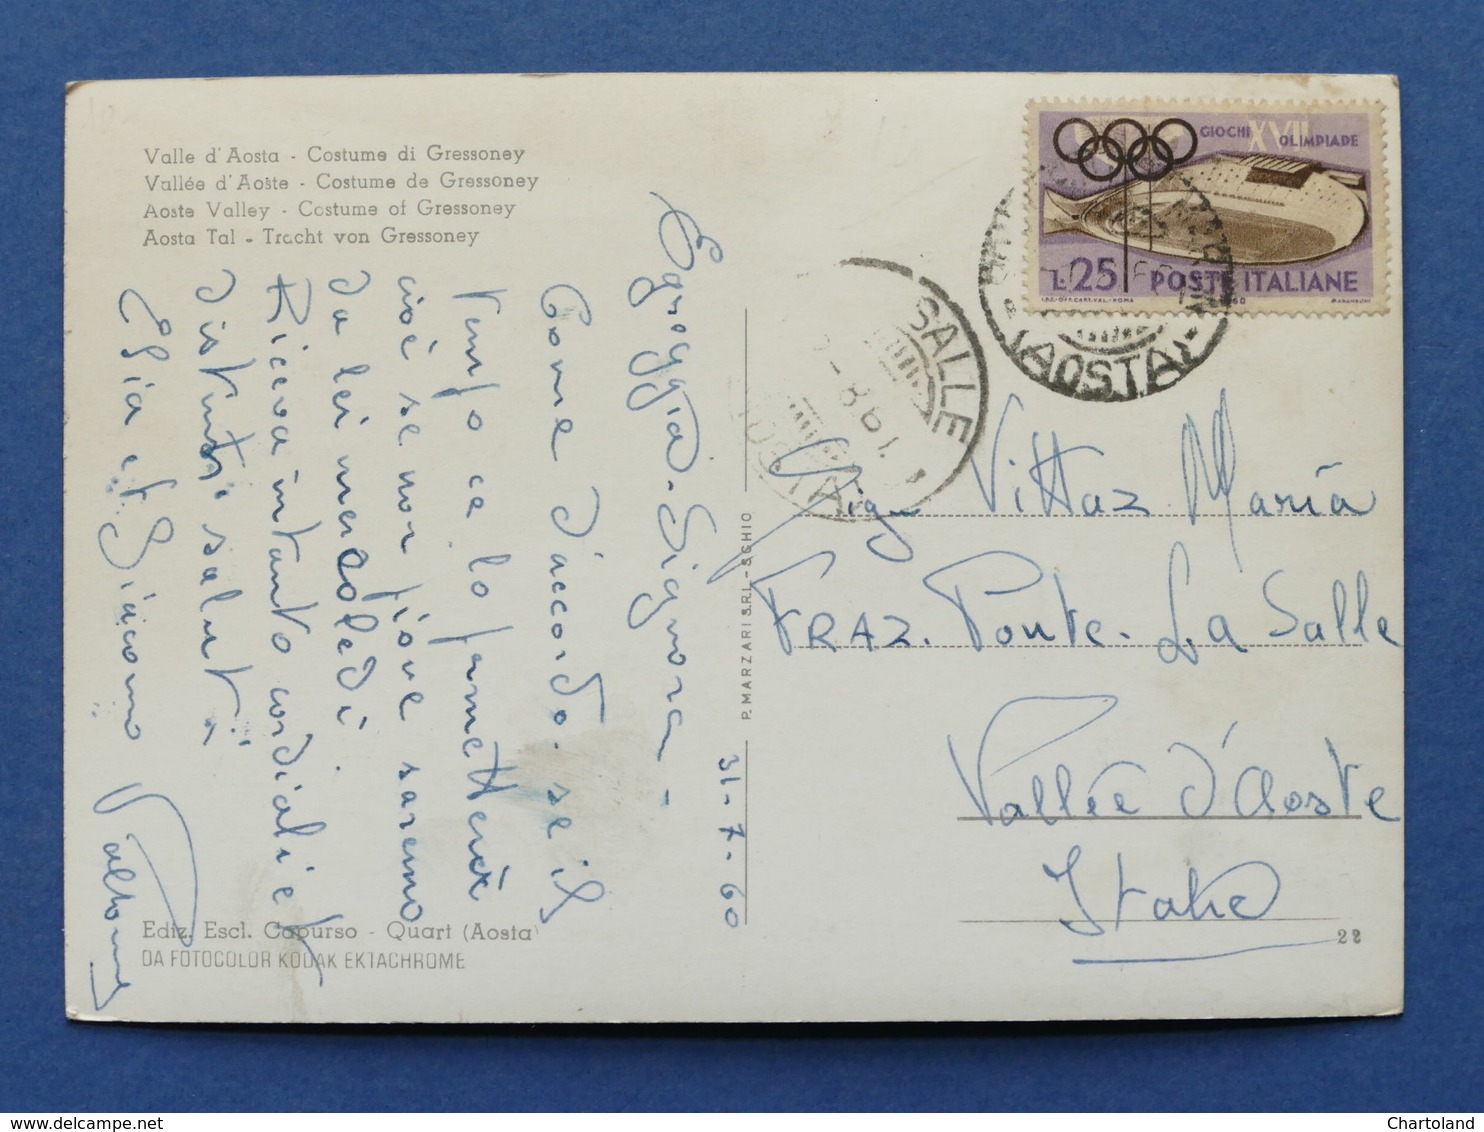 Valle d'Aosta - Costume di Gressoney
Vallée d'Aoste - Costume de Gressoney
Aosta Valley - Costume of Gressoney
Aosta Tal - Tracht von Gressoney
Egreggia Signora -
Come d'accordo - se il
tempo ce lo permetterà
cioè se non piove saremo
da lei mercoledì.
Riceva intanto cordiali et
distinti saluti
et Giacomo
31-7-60
Ediz. Escl. Capurso - Quart (Aosta)
DA FOTOCOLOR KODAK EKTACHROME
P. MARZARI S.R.L. - SCHIO
GIOCHI XVII OLIMPIADE
L.25 POSTE ITALIANE
(AOSTA)
SALLE
Sigra Vittaz Maria
FRAZ. Ponte - La Salle
Vallée d'Aoste
Italie
22
Chartoland